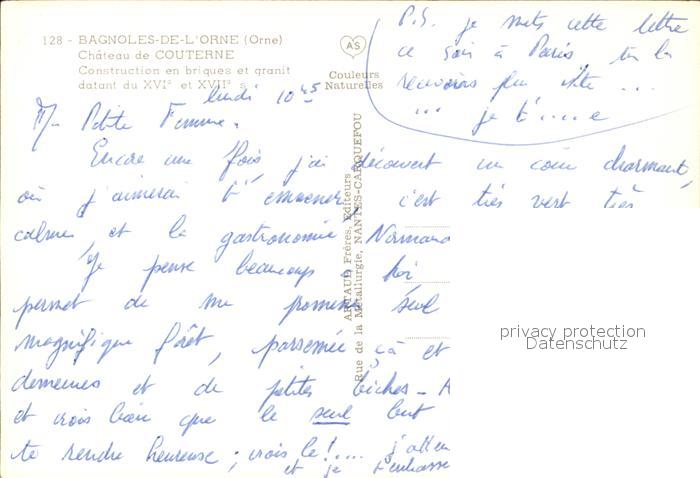 128 - BAGNOLES-DE-L'ORNE (Orne)
Château de COUTERNE
Construction en briques et granit
datant du XVIe et XVIIe s.
AS
Couleurs
Naturelles
ARTAUD Frères, Editeurs
Rue de la Métallurgie, NANTES-CARQUEFOU
P.S. je mets cette lettre
ce soir à Paris, tu la
recevras plus vite ...
... je t'....e
lundi 10 45
Ma Petite Femme.
Encore une fois, j'ai découvert un coin charmant,
où j'aimerai t'emmener, c'est très vert très
calme, et la gastronomie Normand
Je pense beaucoup à toi
permet de me promener seul
magnifique forêt, parsemée çà et
demeures et de petites biches - A
et crois bien que le seul but
te rendre heureuse ; crois le !.... j'atten
et je t'embrasse
privacy protection
Datenschutz